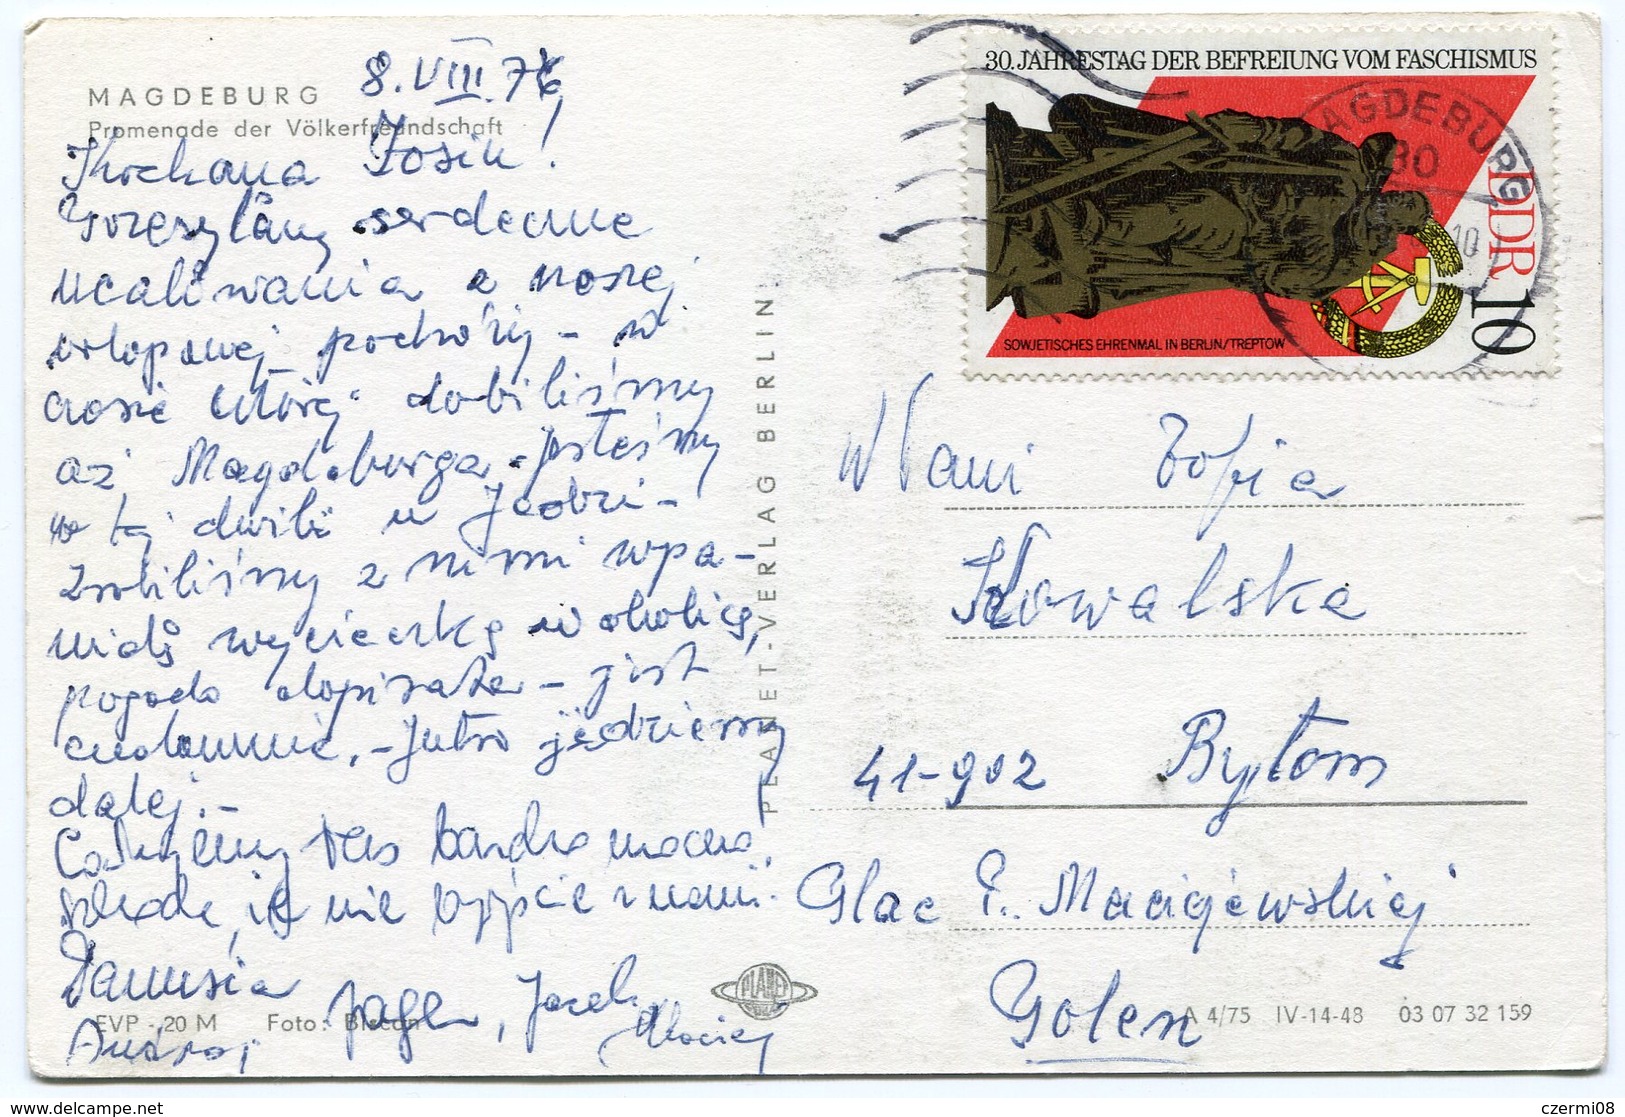 MAGDEBURG
Promenade der Völkerfreundschaft
8.VIII.76
Kochana Zosiu!
Przesyłamy serdeczne
ucałowania z naszej
urlopowej podróży – w
czasie której dobiliśmy
aż Magdeburga. Jesteśmy
w tej chwili u Jacobi –
zrobiliśmy z nimi wspa-
niałą wycieczkę w okolicę,
pogoda dopisała – jest
cudownie. – Jutro jedziemy
dalej. –
Całujemy Was bardzo mocno
szkoda, że nie byjście z nami.
Danusia
Jacek,
Maciej
Andrzej
EVP - 20 M Foto: Biscan
PLANET-VERLAG BERLIN
PLANET
30. JAHRESTAG DER BEFREIUNG VOM FASCHISMUS
SOWJETISCHES EHRENMAL IN BERLIN/TREPTOW
DDR 10
MAGDEBURG
30
10
W Pani Zofia
Kowalska
41-902 Bytom
Glac E. Maciejewskiej
Golen
A 4/75 IV-14-48 03 07 32 159
delcampe.net
czermi08